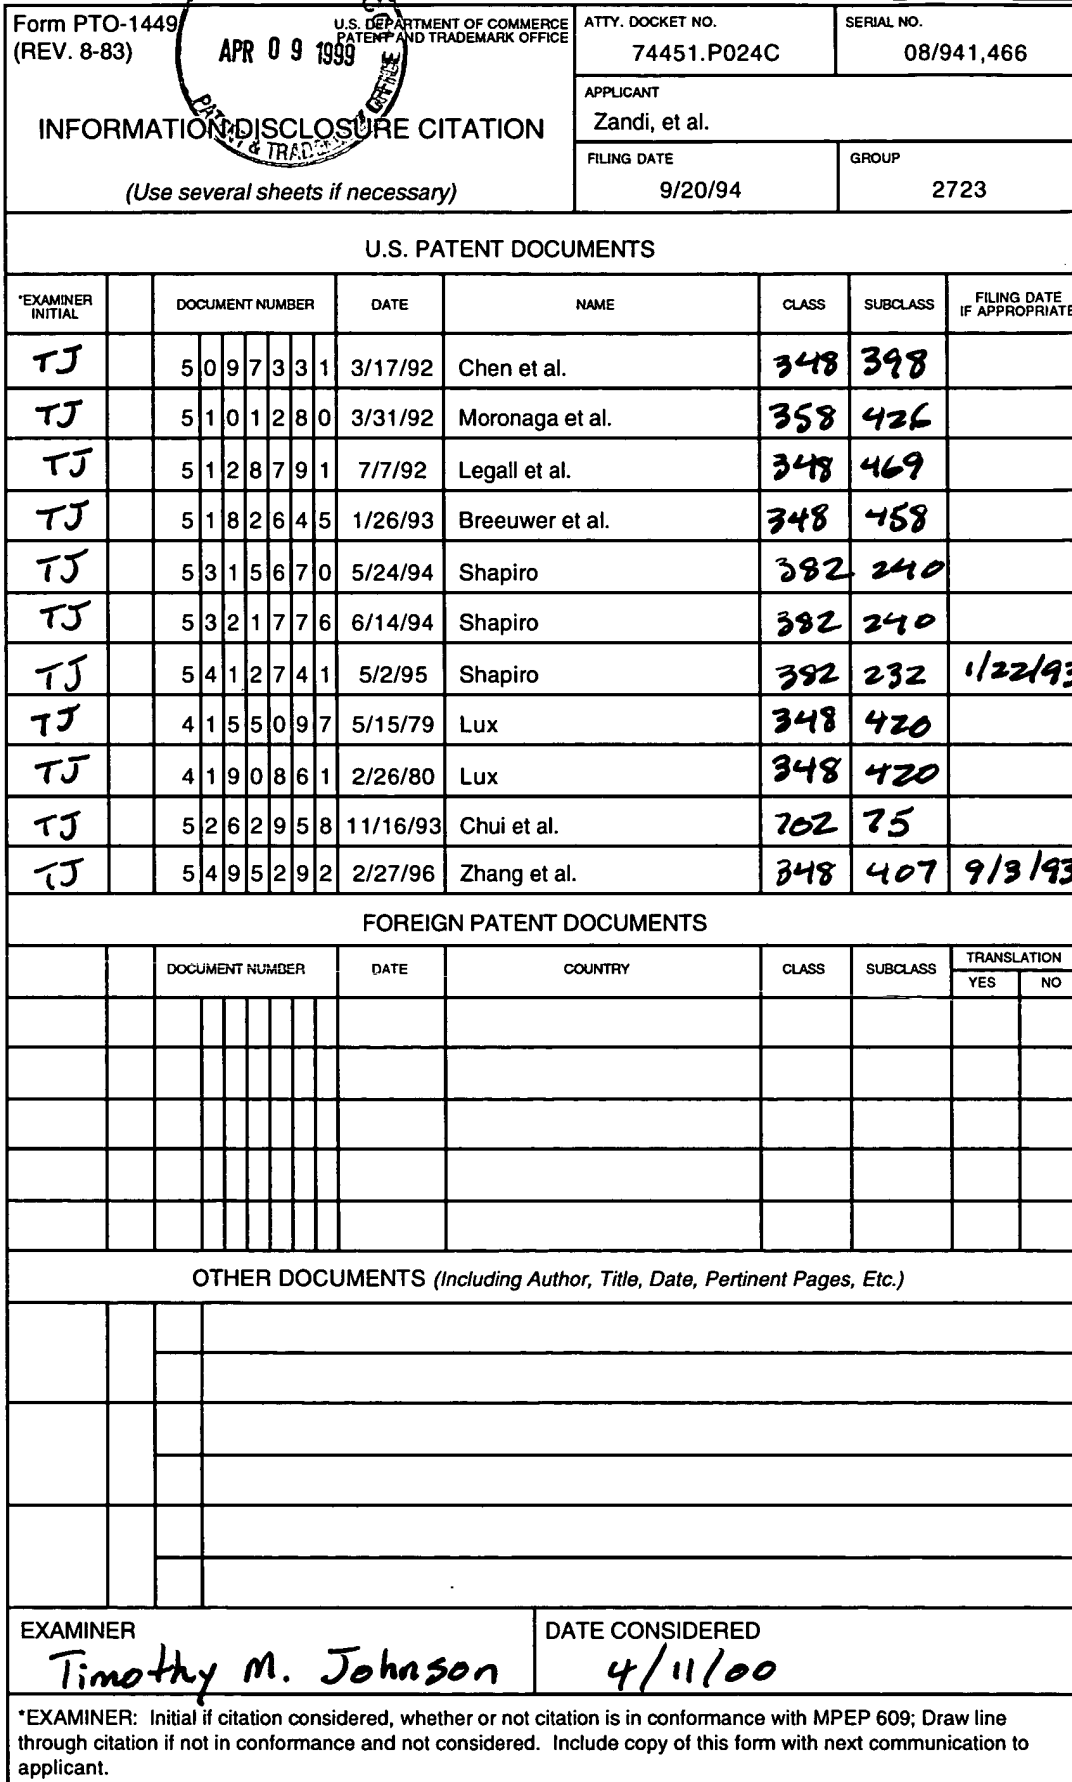 Form PTO-1449
(REV. 8-83)
U.S. DEPARTMENT OF COMMERCE
PATENT AND TRADEMARK OFFICE
APR 09 1999
PATENT & TRADEMARK OFFICE
INFORMATION DISCLOSURE CITATION
(Use several sheets if necessary)
ATTY. DOCKET NO.
74451.P024C
SERIAL NO.
08/941,466
APPLICANT
Zandi, et al.
FILING DATE
9/20/94
GROUP
2723
U.S. PATENT DOCUMENTS
*EXAMINER INITIAL DOCUMENT NUMBER DATE NAME CLASS SUBCLASS FILING DATE IF APPROPRIATE
TJ 5097331 3/17/92 Chen et al. 348 398
TJ 5101280 3/31/92 Moronaga et al. 358 426
TJ 5128791 7/7/92 Legall et al. 348 469
TJ 5182645 1/26/93 Breeuwer et al. 348 458
TJ 5315670 5/24/94 Shapiro 382 240
TJ 5321776 6/14/94 Shapiro 382 240
TJ 5412741 5/2/95 Shapiro 382 232 1/22/93
TJ 4155097 5/15/79 Lux 348 420
TJ 4190861 2/26/80 Lux 348 420
TJ 5262958 11/16/93 Chui et al. 702 75
TJ 5495292 2/27/96 Zhang et al. 348 407 9/3/93
FOREIGN PATENT DOCUMENTS
DOCUMENT NUMBER DATE COUNTRY CLASS SUBCLASS TRANSLATION
YES NO
OTHER DOCUMENTS (Including Author, Title, Date, Pertinent Pages, Etc.)
EXAMINER
Timothy M. Johnson
DATE CONSIDERED
4/11/00
*EXAMINER: Initial if citation considered, whether or not citation is in conformance with MPEP 609; Draw line
through citation if not in conformance and not considered. Include copy of this form with next communication to
applicant.